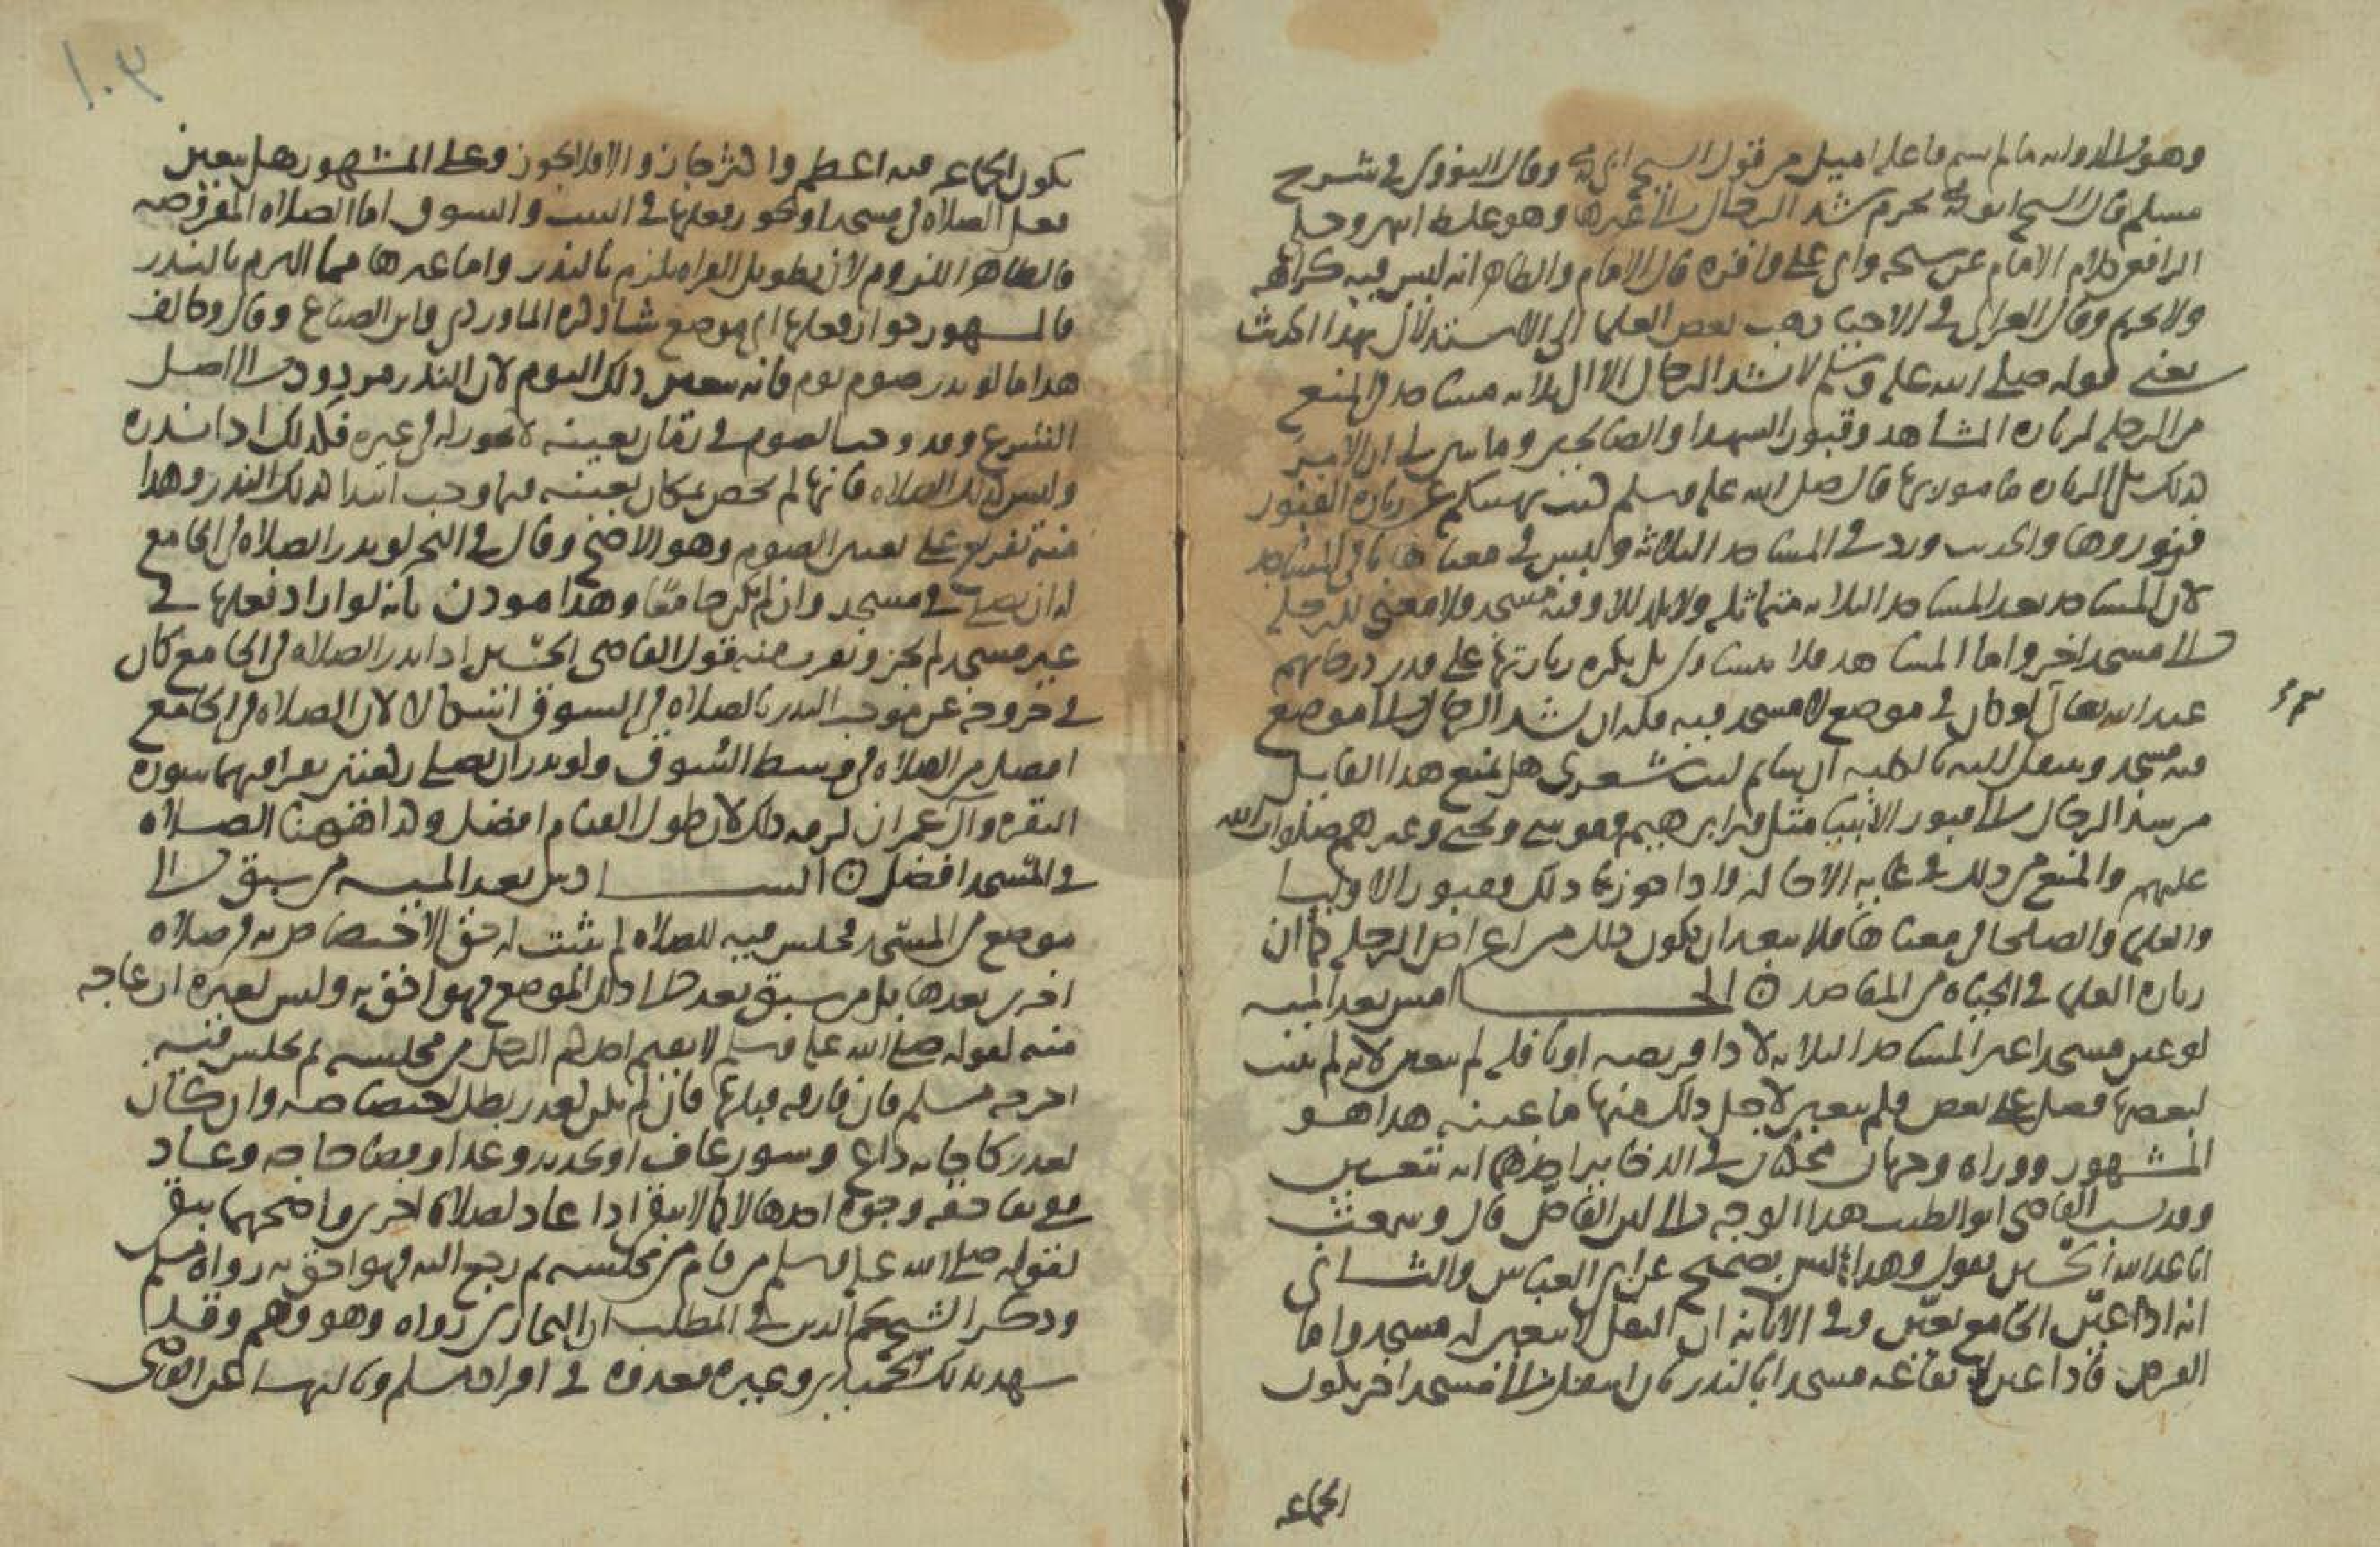 وقال النووي في شرح
مسلم قال الشيخ ابو محمد يحرم شد الرحال الى غيرها وهو غلط انتهى وحكى
الرافعي كلام الامام عن شيخه وابي علي واقره قال الامام والظاهر انه ليس فيه كراهة
ولا تحريم وقال الغزالي في الاحيا ذهب بعض العلما الى الاستدلال بهذا الحديث
يعني قوله صلى الله عليه وسلم لا تشد الرحال الا الى ثلاثة مساجد في المنع
من الرحلة لزيارة المشاهد وقبور الشهدا والصالحين وما تبين لي ان الامر
كذلك بل الزيارة مامور بها قال صلى الله عليه وسلم كنت نهيتكم عن زيارة القبور
فزوروها والحديث ورد في المساجد الثلاثة وليس في معناها باقي المساجد
لان المساجد بعد المساجد الثلاثة متماثلة ولا بلد الا وفيه مسجد ولا معنى للرحلة
الى مسجد اخر واما المشاهد فلا تتساوى بل بركة زيارتها على قدر درجاتهم
عند الله تعالى نعم لو كان في موضع لا مسجد فيه فله ان يشد الرحال الى موضع
فيه مسجد وينتقل اليه بالكلية ان شا ثم ليت شعري هل يمنع هذا القايل
من شد الرحال الى قبور الانبيا مثل ابرهيم وموسى ويحيى وغيرهم صلوات الله
عليهم والمنع من ذلك في غاية الاحالة واذا جوز هذا ذلك فقبور الاوليا
والعلما والصلحا في معناها فلا يبعد ان يكون ذلك من اغراض الرحلة كما ان
زيارة العلما في الحياة من المقاصد ⊙ الخـــامس بعد المية
لو عين مسجدا غير المساجد الثلاثة لادا فريضة او نافلة لم يتعين لانه لم يثبت
لبعضها فضل على بعض فلم يتعين لاجل ذلك منها ما عينه هذا هو
المشهور ووراه وجهان محكيان في الذخاير احدهما انه يتعين
وقد نسب القاضي ابو الطيب هذا الوجه الى ابن القاص قال وسمعت
ابا عبد الله الحسين يقول وهذا ليس بصحيح عن ابي العباس والثاني
انه اذا عين الجامع تعين وفي الابانة ان النفل لا يتعين له مسجد واما
الفرض فاذا عين لايقاعه مسجدا بالنذر فان انتقل الى مسجد اخر يكون
الجماعة
١٠٣
تكون الجماعة فيه اعظم واكثر جاز والا فلا يجوز وعلى المشهور هل يتعين
فعل الصلاة في مسجد او يجوز فعلها في البيت والسوق اما الصلاة المفروضة
فالظاهر اللزوم لان تطويل القراة يلزم بالنذر واما غيرها مما التزم بالنذر
فالمشهور جواز فعلها اي موضع شا ذكره الماوردي وابن الصباغ وقال وخالف
هذا ما لو نذر صوم يوم فانه يتعين ذلك اليوم لان النذر مردود الى اصل
الشرع وقد وجب الصوم في زمان بعينه لا يجوز له في غيره فكذلك اذا نذره
وليس كذلك الصلاة فانها لم تختص بمكان بعينه فيما وجب ابتدا كذلك النذر وهذا
منه تفريع على تعيين الصوم وهو الاصح وقال في البحر لو نذر الصلاة في الجامع
له ان يصلي في مسجد وان لم يكن جامعا وهذا موذن بانه لو اراد فعلها في
غير مسجد لم يجز ويقرب منه قول القاضي الحسين اذا نذر الصلاة في الجامع كان
في خروجه عن موجب النذر بالصلاة في السوق اشكالا لان الصلاة في الجامع
افضل من الصلاة في وسط السوق ولو نذر ان يصلي ركعتين يقرا فيهما سورة
البقرة وآل عمران لزمه ذلك لان طول القيام افضل وكذا ههنا الصلاة
في المسجد افضل ⊙ الســـادس بعد المية من سبق الى
موضع من المسجد فجلس فيه للصلاة لم يثبت له حق الاختصاص به في صلاة
اخرى بعدها بل من سبق بعد الى ذلك الموضع فهو احق به وليس لغيره ازعاجه
منه لقوله صلى الله عليه وسلم لا يقيم احدكم الرجل من مجلسه ثم يجلس فيه
اخرجه مسلم فان فارقه قبلها فان لم يكن لعذر بطل اختصاصه وان كان
لعذر كاجابة داع وسور رعاف او تجديد وضوء او قضا حاجة وعاد
ففي بقا حقه وجوه احدها لا كما لا يبقى اذا عاد لصلاة اخرى واصحهما يبقى
لقوله صلى الله عليه وسلم من قام من مجلسه ثم رجع اليه فهو احق به رواه مسلم
وذكر الشيخ نجم الدين في المطلب ان البخاري رواه وهو وهم وقد
شهد بذلك الحميدي وغيره فعدوه في افراد مسلم